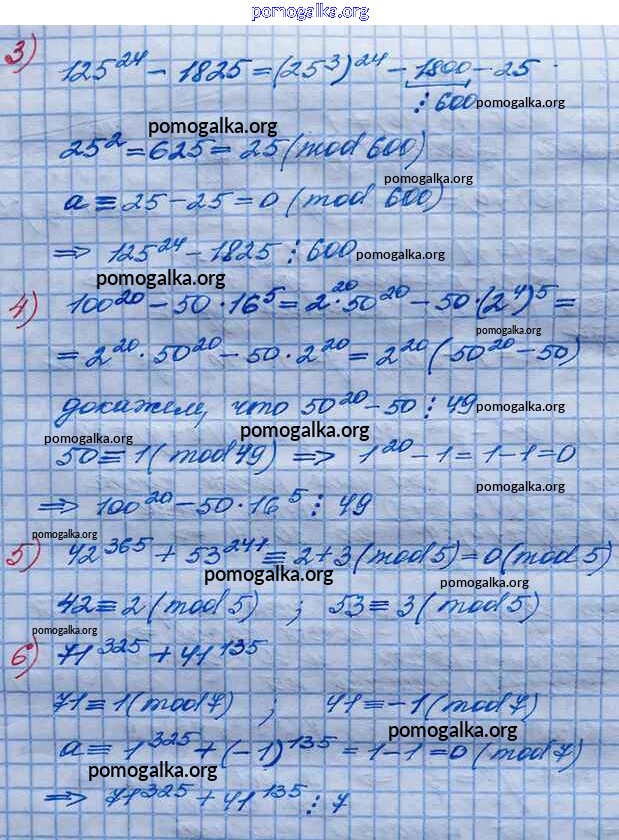 pomogalka.org
3)
125²⁴ - 1825 = (25³)²⁴ - 1800 - 25
⋮ 600 pomogalka.org
pomogalka.org
25² = 625 = 25 (mod 600)
pomogalka.org
a ≡ 25 - 25 = 0 (mod 600)
⇒ 125²⁴ - 1825 ⋮ 600 pomogalka.org
pomogalka.org
4) 100²⁰ - 50 · 16⁵ = 2²⁰ · 50²⁰ - 50 · (2⁴)⁵ =
pomogalka.org
= 2²⁰ · 50²⁰ - 50 · 2²⁰ = 2²⁰ (50²⁰ - 50)
докажем, что 50²⁰ - 50 ⋮ 49 pomogalka.org
pomogalka.org pomogalka.org
50 ≡ 1 (mod 49) ⇒ 1²⁰ - 1 = 1 - 1 = 0
pomogalka.org
⇒ 100²⁰ - 50 · 16⁵ ⋮ 49
pomogalka.org
5) 42³⁶⁵ + 53²⁴¹ ≡ 2 + 3 (mod 5) = 0 (mod 5)
pomogalka.org pomogalka.org
42 ≡ 2 (mod 5) ; 53 ≡ 3 (mod 5)
pomogalka.org
6) 71³²⁵ + 41¹³⁵
71 ≡ 1 (mod 7) ; 41 ≡ -1 (mod 7)
pomogalka.org
a ≡ 1³²⁵ + (-1)¹³⁵ = 1 - 1 = 0 (mod 7)
pomogalka.org
⇒ 71³²⁵ + 41¹³⁵ ⋮ 7
pomogalka.org